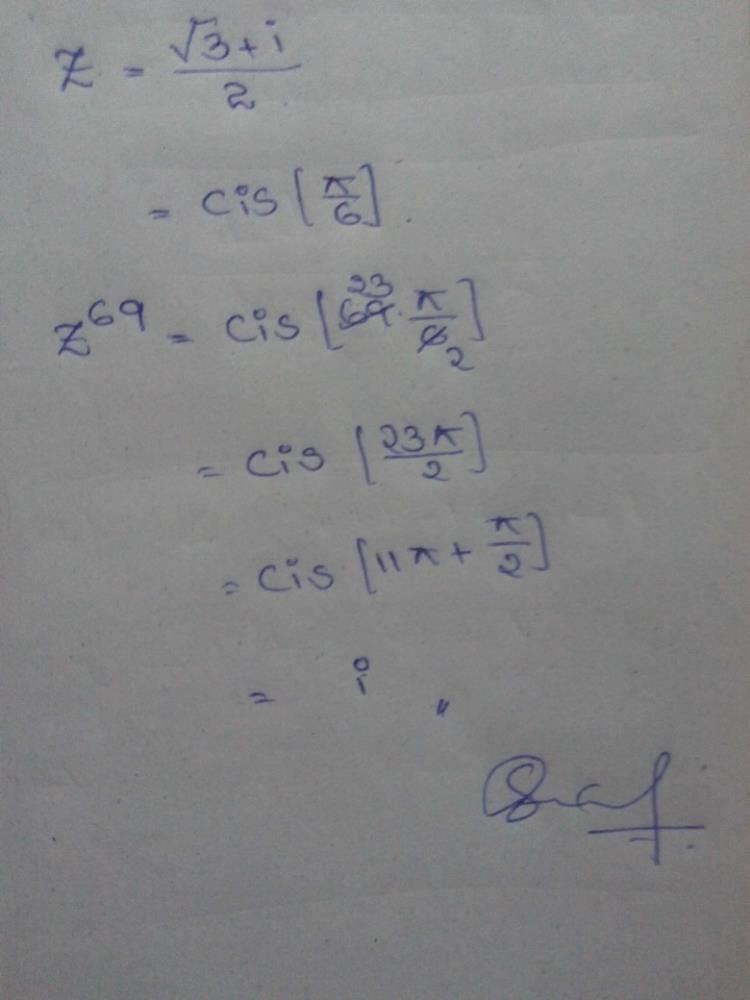 Z = √3 + i / 2
= cis [π/6]
Z^69 = cis [69 23 · π/6 2]
= cis [23π/2]
= cis [11π + π/2]
= i "